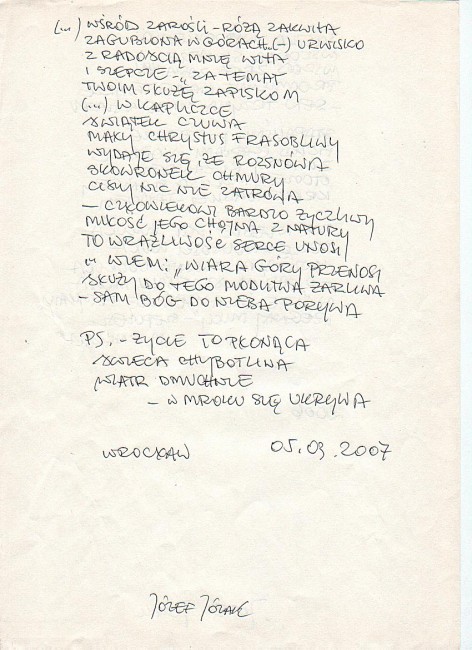 (...) WŚRÓD ZAROŚLI - RÓŻĄ ZAKWITA
ZAGUBIONA W GÓRACH...(-) URWISKO
Z RADOŚCIĄ MNIE WITA
I SZEPCZE - „ZA TEMAT
TWOIM SŁUŻĘ ZAPISKOM
(...) W KAPLICZCE
ŚWIĄTEK CZUWA
MAŁY CHRYSTUS FRASOBLIWY
WYDAJE SIĘ, ŻE ROZSNUWA
SKOWRONEK CHMURY
CISZY NIC NIE ZATRUWA
- CZŁOWIEKOWI BARDZO ŻYCZLIWY
MIŁOŚĆ JEGO CHOJNA Z NATURY
TO WRAŻLIWOŚĆ SERCE UNOSI
WIEM: „WIARA GÓRY PRZENOSI
SŁUŻY DO TEGO MODLITWA ŻARLIWA
- SAM BÓG DO NIEBA PORYWA
PS. - ŻYCIE TO PŁONĄCA
ŚWIECA CHYBOTLIWA
WIATR DMUCHNIE
- W MROKU SIĘ UKRYWA
WROCŁAW 05.03.2007
JÓZEF